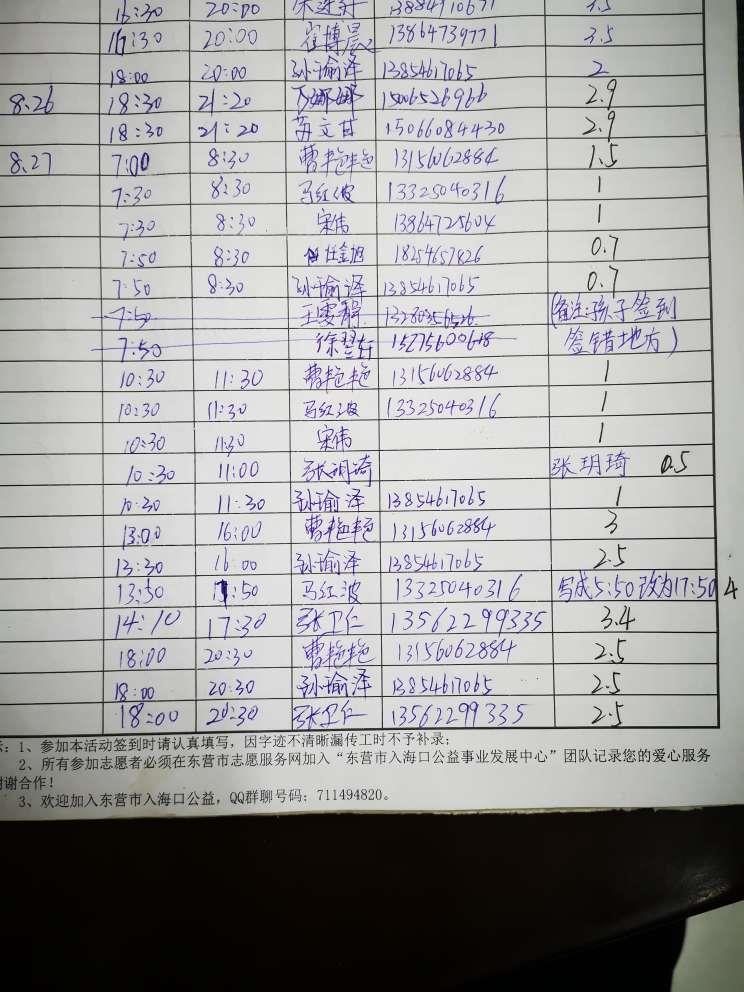 16:30 20:00 13884910671 3.5
16:30 20:00 崔博晨 13864739771 3.5
18:00 20:00 孙瑜泽 13854617065 2
8.26 18:30 21:20 娜娜 1506528966 2.9
18:30 21:20 苏文甘 15066084430 2.9
8.27 7:00 8:30 曹艳艳 13156062884 1.5
7:30 8:30 马红波 13325040316 1
7:30 8:30 宋伟 13864725604 1
7:50 8:30 任金旭 18254657826 0.7
7:50 8:30 孙瑜泽 13854617065 0.7
7:50 王雯 13280356526 (备注:孩子签到
7:50 徐翌轩 15275600618 签错地方)
10:30 11:30 曹艳艳 13156062884 1
10:30 11:30 马红波 13325040316 1
10:30 11:30 宋伟 1
10:30 11:00 张玥琦 张玥琦 0.5
10:30 11:30 孙瑜泽 13854617065 1
13:00 16:00 曹艳艳 13156062884 3
13:30 16:00 孙瑜泽 13854617065 2.5
13:50 17:50 马红波 13325040316 写成5:50改为17:50 4
14:10 17:30 张卫仁 13562299335 3.4
18:00 20:30 曹艳艳 13156062884 2.5
18:00 20:30 孙瑜泽 13854617065 2.5
18:00 20:30 张卫仁 13562299335 2.5
：1、参加本活动签到时请认真填写，因字迹不清晰漏传工时不予补录；
2、所有参加志愿者必须在东营市志愿服务网加入“东营市入海口公益事业发展中心”团队记录您的爱心服务
谢谢合作！
3、欢迎加入东营市入海口公益，QQ群聊号码：711494820。